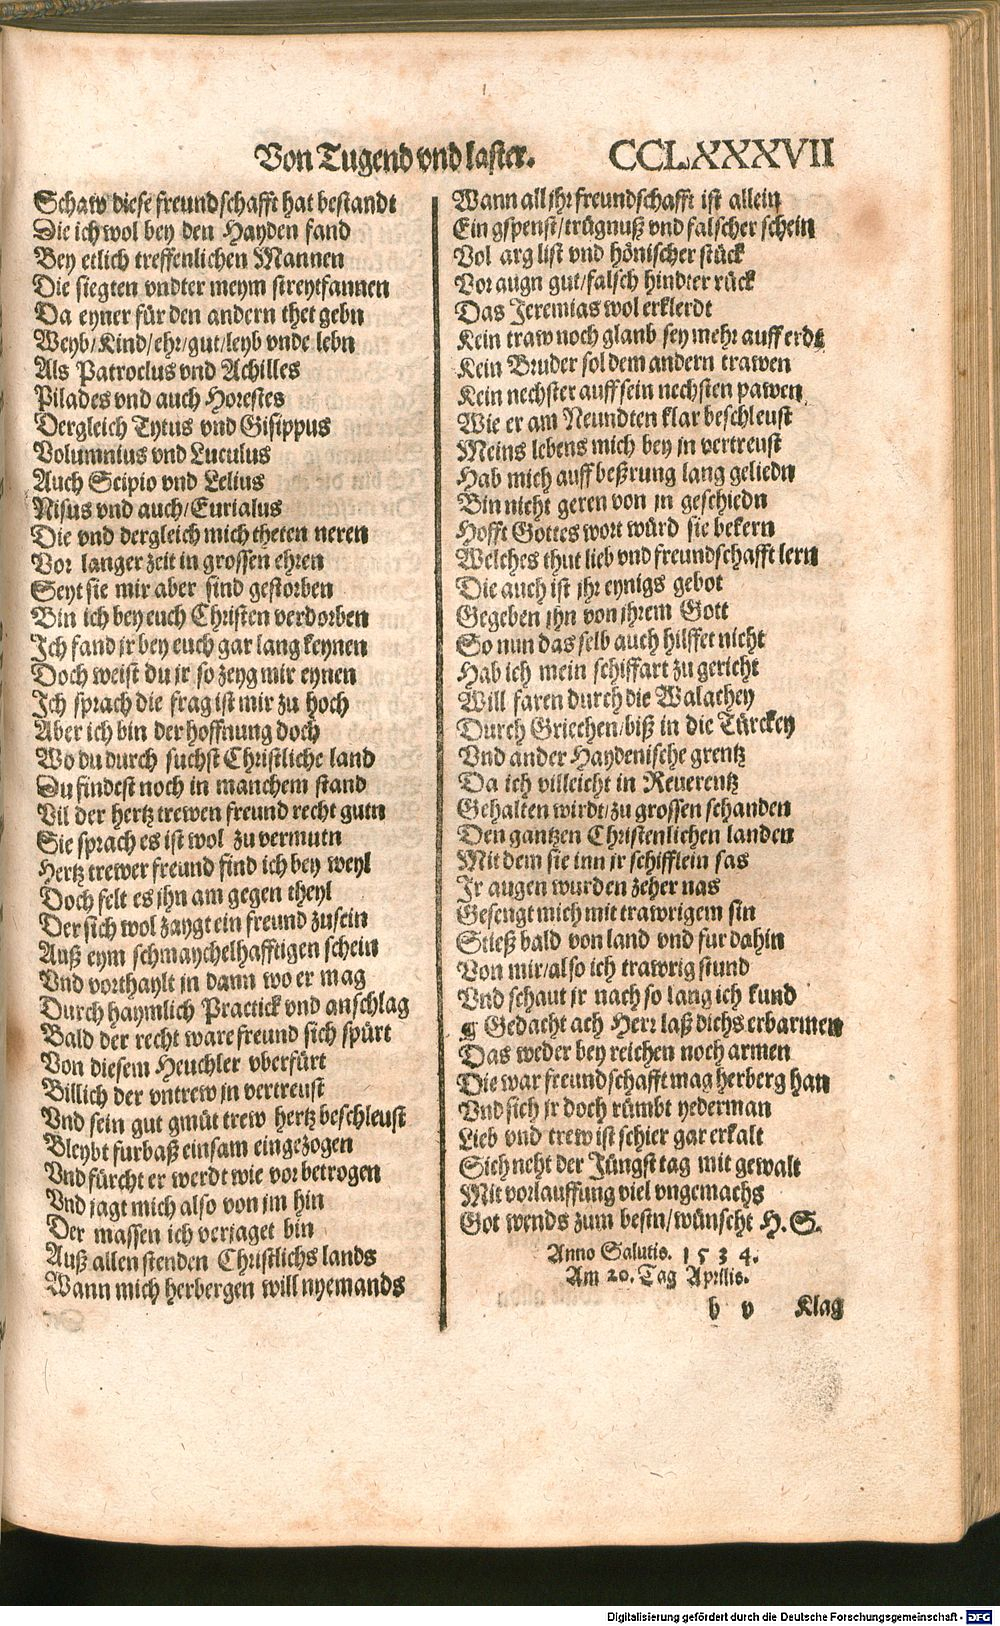 Von Tugend vnd laster. CCLXXXVII
Schaw diese freundschafft hat bestandt
Die ich wol bey den Hayden fand
Bey etlich treffenlichen Mannen
Die siegten vndter meym streytfannen
Da eyner für den andern thet gebn
Weyb/Kind/ehr/gut/leyb vnde lebn
Als Patroclus vnd Achilles
Pilades vnd auch Horestes
Dergleich Tytus vnd Gisippus
Volumnius vnd Luculus
Auch Scipio vnd Lelius
Nisus vnd auch/Eurialus
Die vnd dergleich mich theten neren
Vor langer zeit in grossen ehren
Seyt sie mir aber sind gestorben
Bin ich bey euch Christen verdorben
Ich fand jr bey euch gar lang keynen
Doch weist du jr so zeyg mir eynen
Ich sprach die frag ist mir zu hoch
Aber ich bin der hoffnung doch
Wo du durch suchst Christliche land
Du findest noch in manchem stand
Vil der hertz trewen freund recht gutn
Sie sprach es ist wol zu vermutn
Hertz trewer freund find ich bey weyl
Doch felt es jhn am gegen theyl
Der sich wol zaygt ein freund zu sein
Auß eym schmaychelhafftigen schein
Vnd vorthaylt jn dann wo er mag
Durch haymlich Practick vnd anschlag
Bald der recht ware freund sich spürt
Von diesem Heuchler vberfürt
Billich der vntrew jn vertreust
Vnd sein gut gmüt trew hertz beschleust
Bleybt furbaß einsam eingezogen
Vnd fürcht er werdt wie vor betrogen
Vnd jagt mich also von jm hin
Der massen ich verjaget bin
Auß allen stenden Christlichs lands
Wann mich herbergen will nyemands
Wann all jhr freundschafft ist allein
Ein gspenst/trügnuß vnd falscher schein
Vol arg list vnd hönischer stück
Vor augn gut/falsch hindter rück
Das Jeremias wol erklerdt
Kein traw noch glanb sey mehr auff erdt
Kein Bruder sol dem andern trawen
Kein nechster auff sein nechsten pawen
Wie er am Neundten klar beschleust
Meins lebens mich bey jn vertreust
Hab mich auff beßrung lang geliedn
Bin nicht geren von jn geschiedn
Hofft Gottes wort würd sie bekern
Welches thut lieb vnd freundschafft lern
Die auch ist jhr eynigs gebot
Gegeben jhn von jhrem Gott
So nun das selb auch hilffet nicht
Hab ich mein schiffart zu gericht
Will faren durch die Walachey
Durch Griechen/biß in die Türckey
Vnd ander Haydenische grentz
Da ich villeicht in Reuerentz
Gehalten wirdt/zu grossen schanden
Den gantzen Christenlichen landen
Mit dem sie inn jr schifflein sas
Jr augen wurden zeher nas
Gesengt mich mit trawrigem sin
Stieß bald von land vnd fur dahin
Von mir/also ich trawrig stund
Vnd schaut jr nach so lang ich kund
¶ Gedacht ach Herr laß dichs erbarmen
Das weder bey reichen noch armen
Die war freundschafft mag herberg han
Vnd sich jr doch rümbt yederman
Lieb vnd trew ist schier gar erkalt
Sich neht der Jüngst tag mit gewalt
Mit vorlauffung viel vngemachs
Got wends zum bestn/wünscht H. S.
Anno Salutis. 1534.
Am 20. Tag Aprilis.
b v Klag
Digitalisierung gefördert durch die Deutsche Forschungsgemeinschaft - DFG